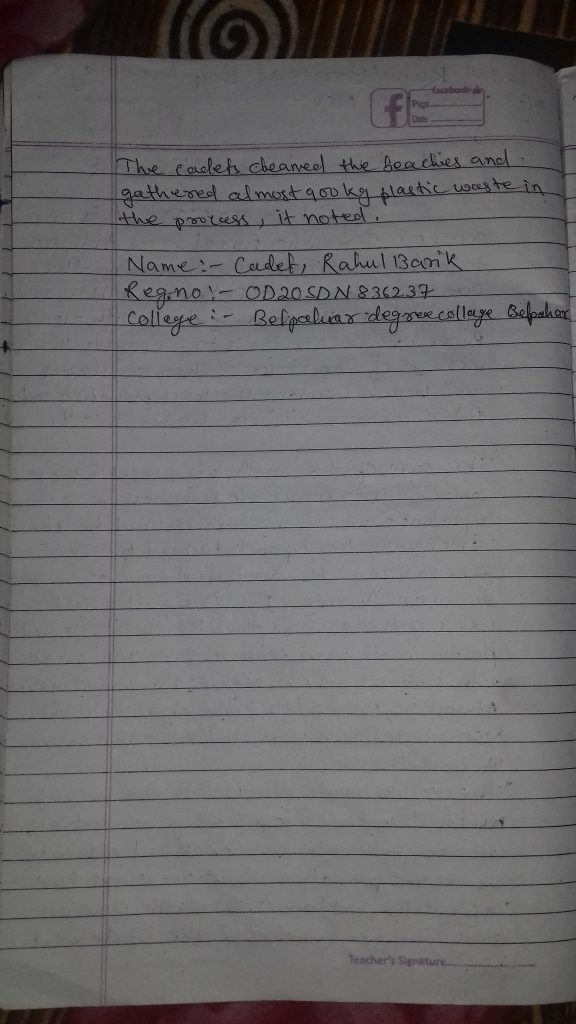 facebook
f
Page
Date
The cadets cleaned the beaches and
gathered almost 900 kg plastic waste in
the process, it noted.
Name :- Cadet, Rahul Barik
Reg.no :- OD20SDN836237
Collage :- Belpahar degree collage Belpahar
Teacher's Signature